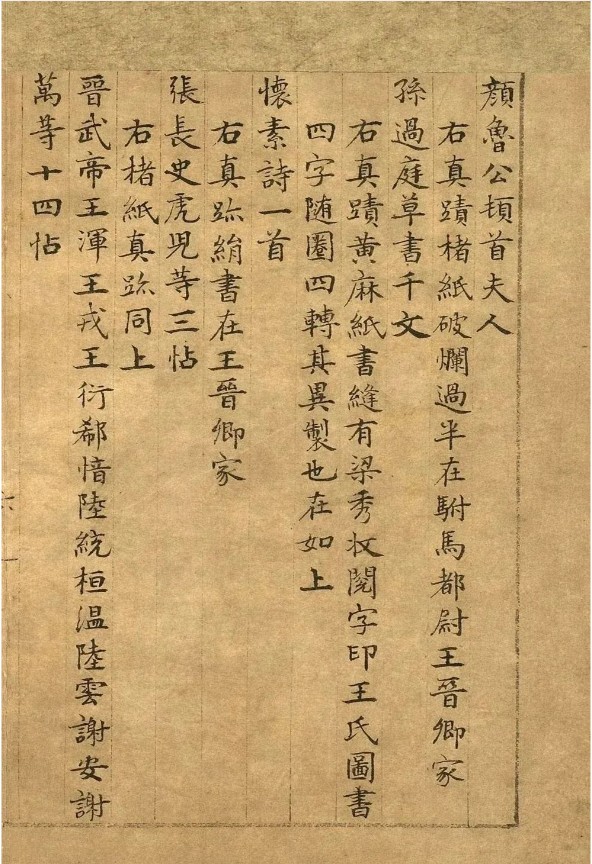 顔魯公頓首夫人
右真蹟楮紙破爛過半在駙馬都尉王晉卿家
孫過庭草書千文
右真蹟黃麻紙書縫有梁秀收閱字印王氏圖書
四字随圈四轉其異製也在如上
懷素詩一首
右真跡絹書在王晉卿家
張長史虎兒等三帖
右楮紙真跡同上
晉武帝王渾王戎王衍郗愔陸統桓温陸雲謝安謝
萬等十四帖